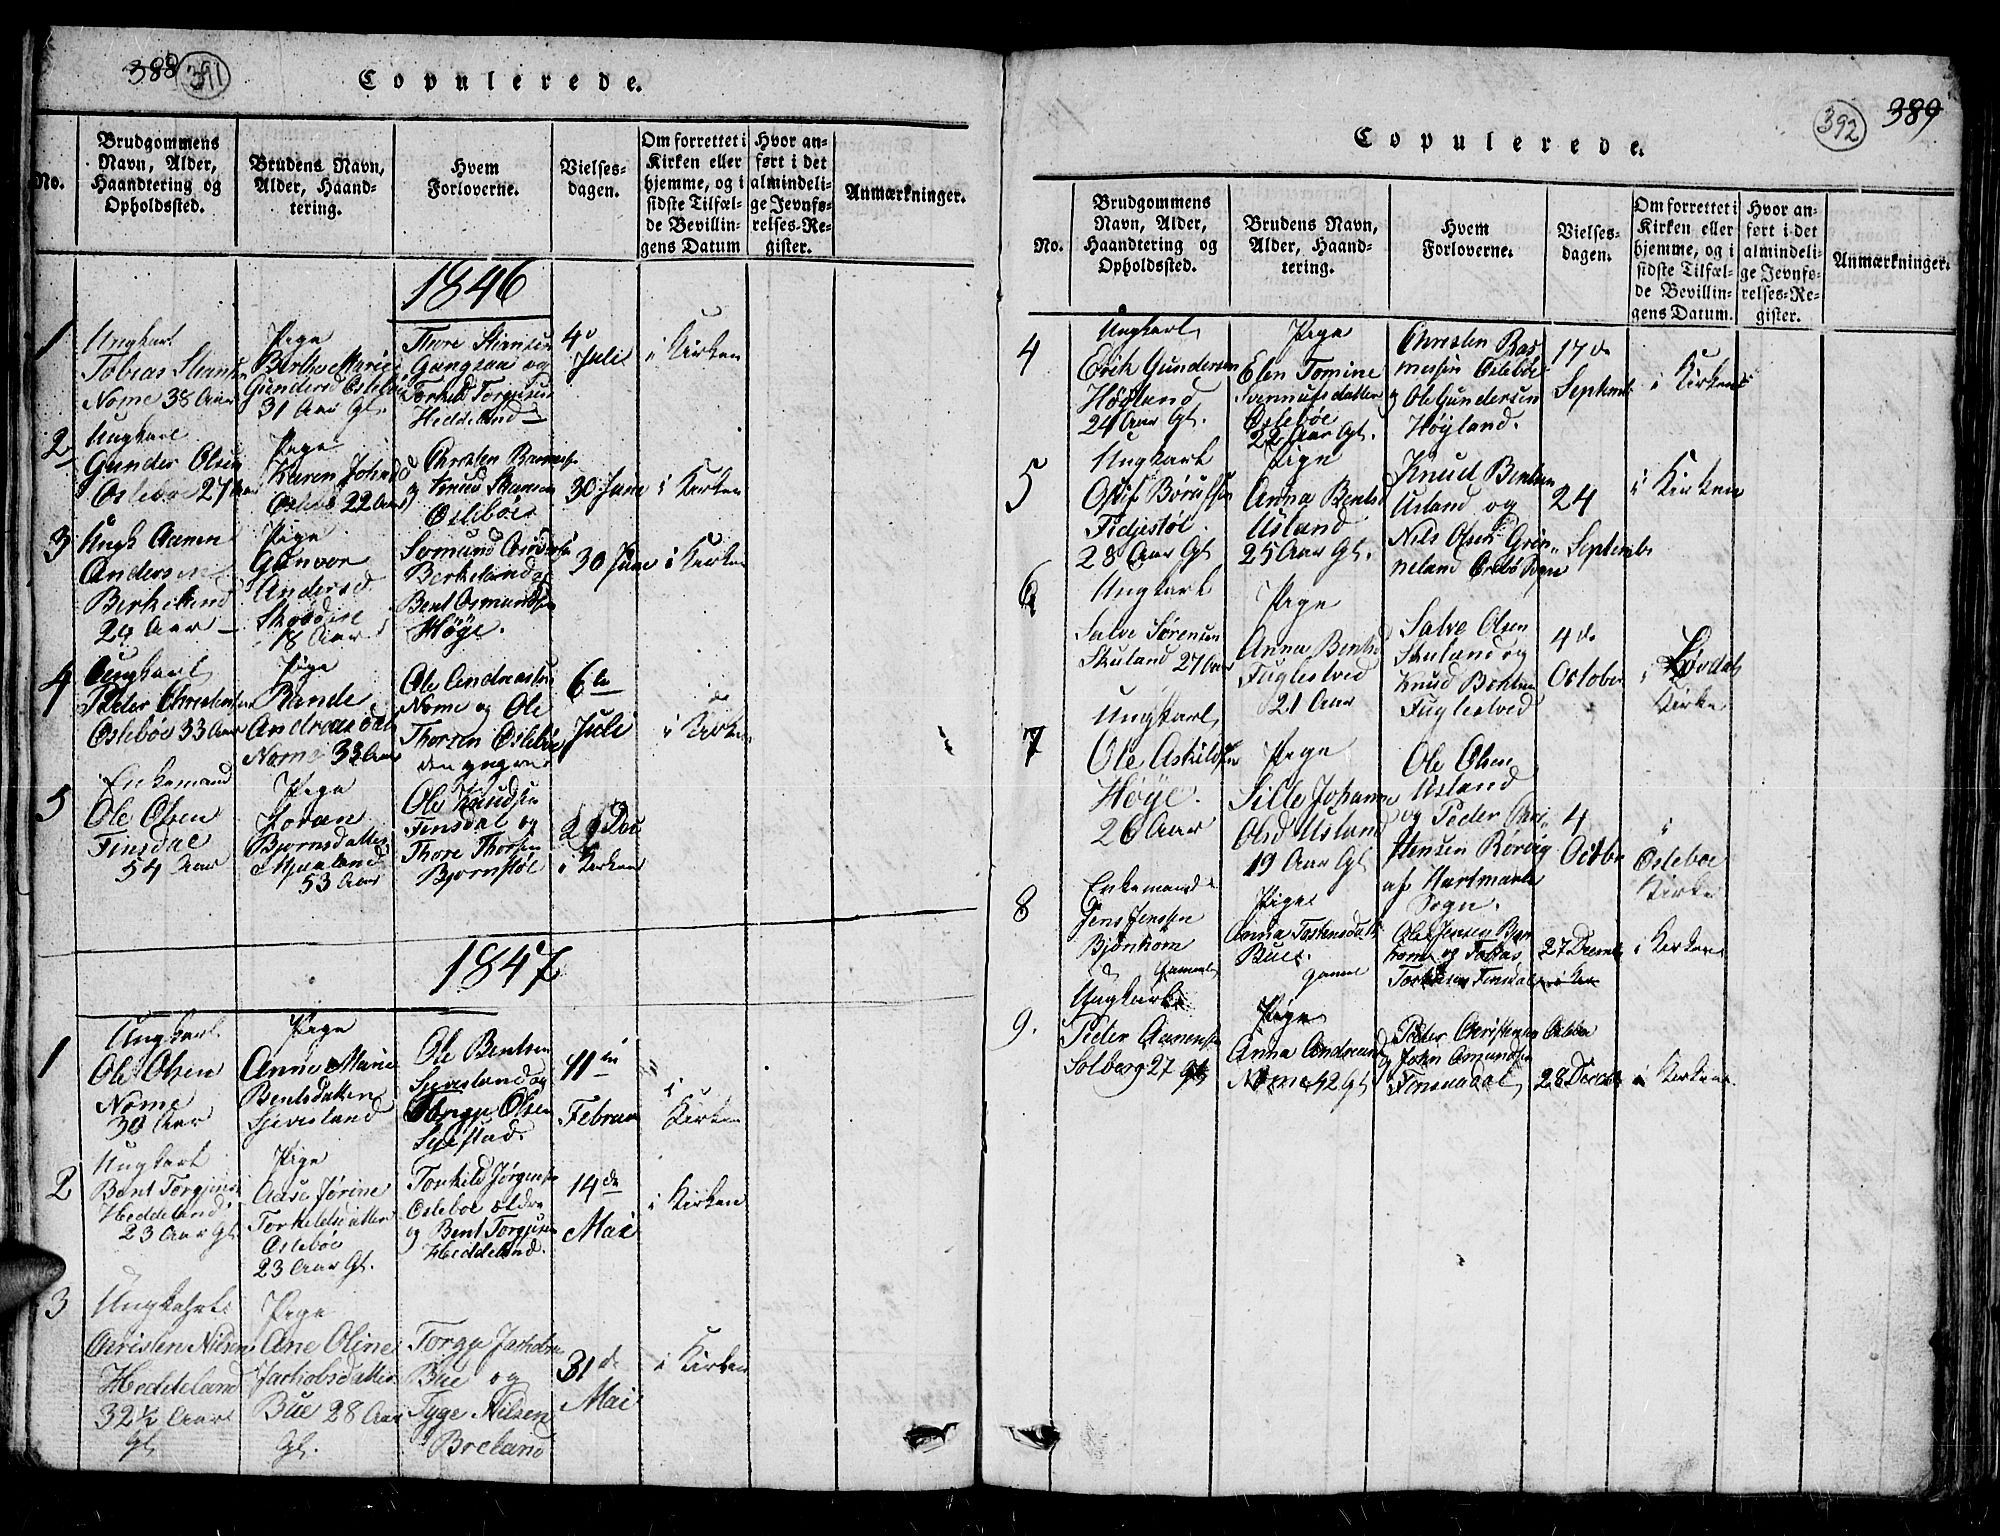 388 391
Copulerede.
No.
Brudgommens
Navn, Alder,
Haandtering og
Opholdssted.
Brudens Navn,
Alder, Haand-
tering.
Hvem
Forloverne.
Vielses-
dagen.
Om forrettet i
Kirken eller
hjemme, og i
sidste Tilfæl-
de Bevillin-
gens Datum
Hvor an-
ført i det
almindeli-
ge Jevnfø-
relses-Re-
gister.
Anmærkninger.
1846
1
Ungkarl
Tobias
Nome 38 Aar
Pige
Berthe Marie
Gundersd Oslebø
31 Aar Gl.
Thore Stiansen
Gangsaa og
Torkild Torgjusen
Heddeland
4de
Juli
i Kirken
2
Ungkarl
Gunder Olsen
Oslebøe 27 Aar
Pige
Karen Johnsd
Oslebø 22 Aar
Christen
og Knud
Oslebøe
30 June
i Kirken
3
Ungk Aanen
Andersen
Berkeland
24 Aar
Pige
Gunvor
Andersd
18 Aar
Berkeland og
Bent Osmundsen
Høye.
30 June
i Kirken
4
Ungkarl
Peder Christensen
Oslebøe 33 Aar
Pige
Rande
Andreasdat
Nome 33 Aar
Ole Andreasen
Nome og Ole
Thorsen Oslebøe
den yngre
6te
Juli
i Kirken
5
Enkemand
Ole Olsen
Finsdal
54 Aar
Pige
Joran
Bjornsdatter
53 Aar
Ole Knudsen
Finsdal og
Thore Thorsen
Bjornstøl
29 Dec
i Kirken
1847
1
Ungkarl
Ole Olsen
Nome
30 Aar
Pige
Anne Marie
Bentsdatter
Sjeveland
Ole Bentsen
Sjeveland og
Torgju Olsen
11te
Februar
i
Kirken
2
Ungkarl
Bent Torgjusen
Heddeland
23 Aar Gl
Pige
Aase Jørine
Torkeldsdatter
Oslebøe
23 Aar Gl.
Torkild Jørgensen
Oslebøe ældre
og Bent Torgjusen
Heddeland.
14de
Mai
i Kirken
3
Ungkarl
Christen Nilsen
Heddeland
32½ Aar
Gl
Pige
Ane Oline
Jachobsdatter
Bue 28 Aar
Gl.
Torgju Jachobsen
Bue og
Tyge Nilsen
Breland
31de
Mai
i Kirken
392 389
Copulerede.
No.
Brudgommens
Navn, Alder,
Haandtering og
Opholdssted.
Brudens Navn,
Alder, Haand-
tering.
Hvem
Forloverne.
Vielses-
dagen.
Om forrettet i
Kirken eller
hjemme, og i
sidste Tilfæl-
de Bevillin-
gens Datum.
Hvor an-
ført i det
almindeli-
ge Jevnfø-
relses-Re-
gister.
Anmærkninger.
4
Ungkarl
Erik Gundersen
Høiland
24 Aar Gl.
Pige
Elen Tomine
Svennufsdatter
Oslebøe
22 Aar Gl.
Christen Ras
musen Oslebøe
og Ole Gundersen
Høyland.
17de
Septemb
i Kirken
5
Ungkarl
Fidjestøl
28 Aar Gl
Pige
Anna Bentsd
Usland
25 Aar Gl.
Knud Bentsen
Usland og
Nils Olsen Grøn-
neland
24
Septembr
i Kirken
6
Ungkarl
Salve Sørensen
Skuland 27 Aar
Pige
Anna Bentsd
Fuglestved
21 Aar
Salve Olsen
Skuland og
Knud
Fuglestved
4de
October
i Løvdals
Kirke
7
Ungkarl
Ole Askildsen
Høye.
26 Aar
Pige
Sille Johanne
Olsd Usland
19 Aar Gl
Ole Olsen
Usland
og Peder Chri-
stensen Rørvig
af Hartmark
Sogn.
4
Octbr
i
Oslebøe
Kirke
8
Enkemand
Jens Jensen
Gammel
Pige
Anna Tostensdatt
Bue.
Gamel
Ole Jensen
og Tobias
Finsdal
27 Decemb
i Kirken
9.
Ungkarl
Peder Aanensen
Solberg 27 Gl
Pige
Anna Andreasd
Nome 42 Gl
Peder Christensen Oslebøe
og John Asmundsen
Finsaadal
28 Decbr
i Kirken